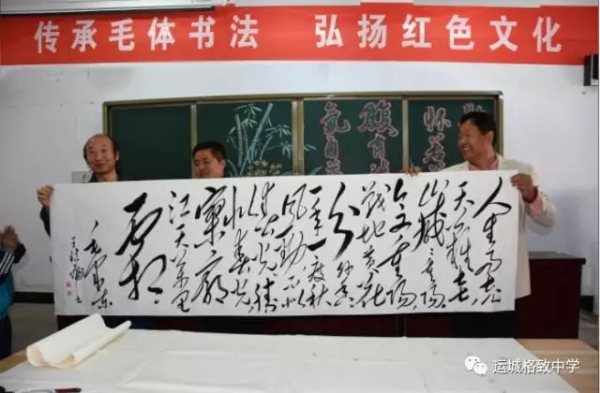 传承毛体书法 弘扬红色文化
人生易老
天难老
岁岁重阳
今又重阳
战地黄花
分外香
一年一度秋
风劲不似
春光胜
似春光
寥廓
江天万里
霜
毛泽东
氣自
腹有
怀若
运城格致中学